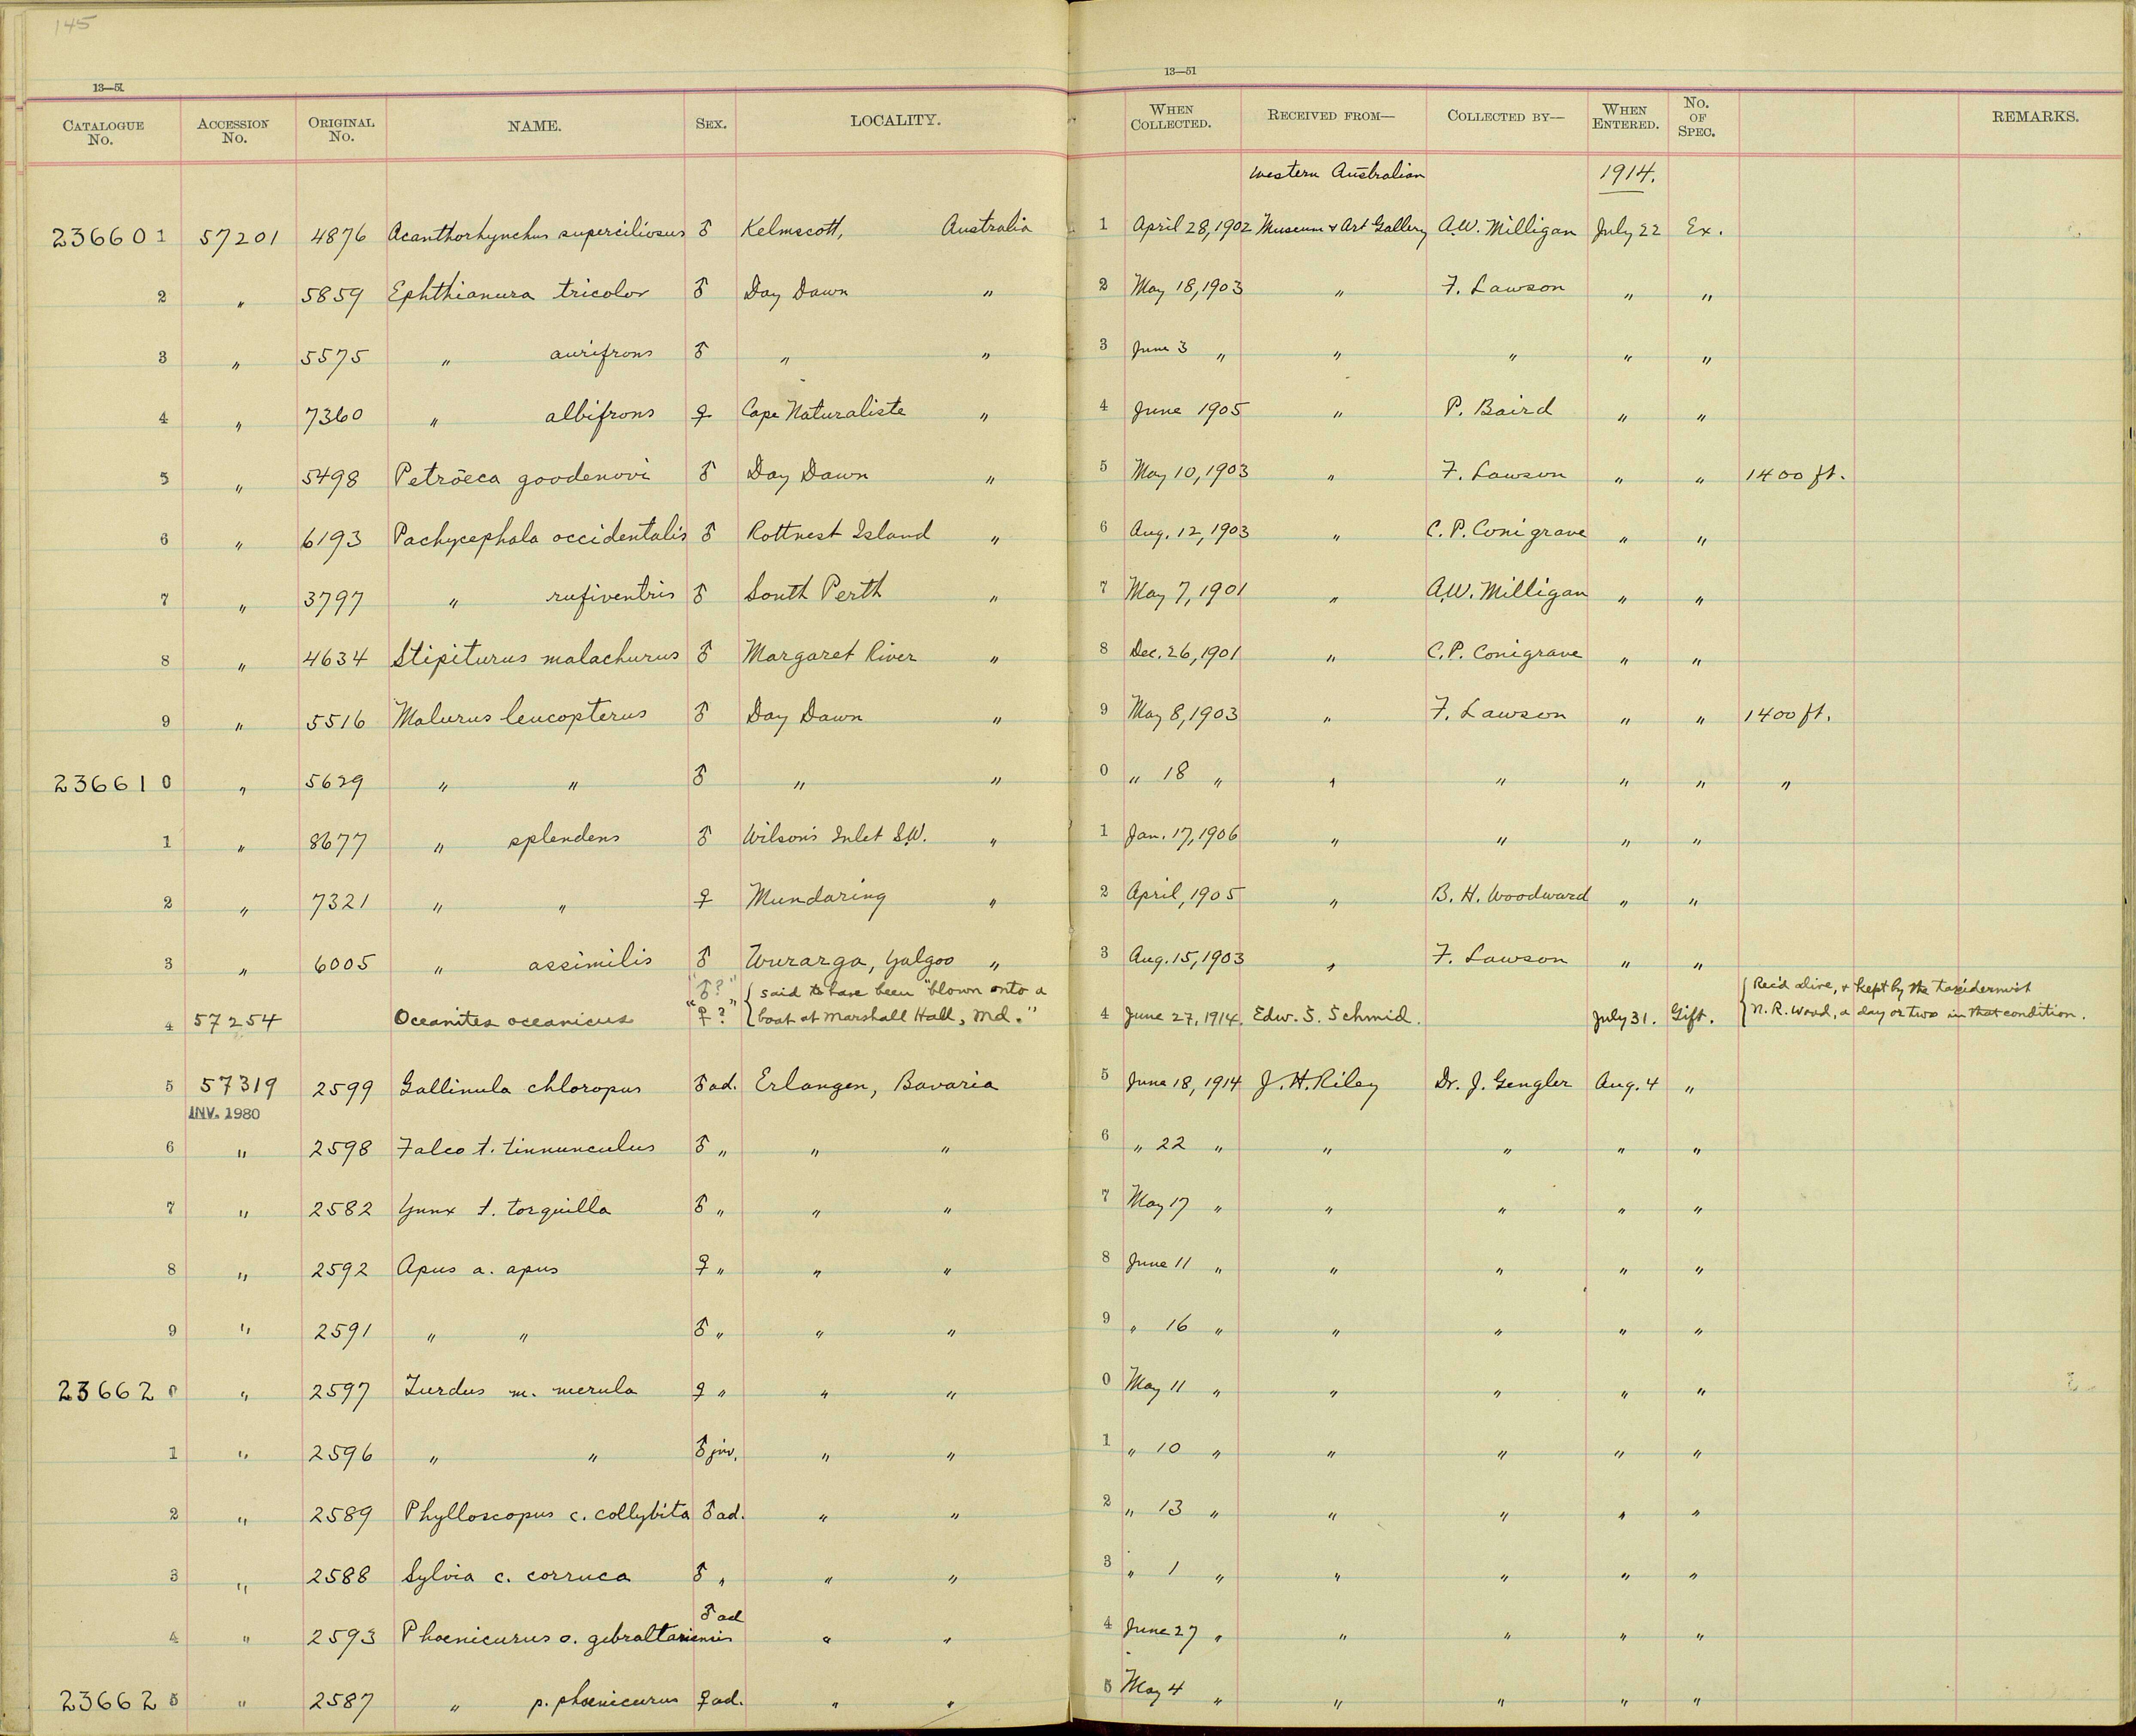 145
13—51
13—51
CATALOGUE No. ACCESSION No. ORIGINAL No. NAME. SEX. LOCALITY. WHEN COLLECTED. RECEIVED FROM— COLLECTED BY— WHEN ENTERED. No. OF SPEC. REMARKS.
Western Australian 1914.
236601 57201 4876 Acanthorhynchus superciliosus ♂ Kelmscott, Australia 1 April 28, 1902 Museum & Art Gallery A.W. Milligan July 22 Ex.
2 " 5859 Ephthianura tricolor ♂ Day Dawn " 2 May 18, 1903 " F. Lawson " "
3 " 5575 " aurifrons ♂ " " 3 June 3 " " " " "
4 " 7360 " albifrons ♀ Cape Naturaliste " 4 June 1905 " P. Baird " "
5 " 5498 Petröeca goodenovi ♂ Day Dawn " 5 May 10, 1903 " F. Lawson " " 1400 ft.
6 " 6193 Pachycephala occidentalis ♂ Rottnest Island " 6 Aug. 12, 1903 " C. P. Conigrave " "
7 " 3797 " rufiventris ♂ South Perth " 7 May 7, 1901 " A.W. Milligan " "
8 " 4634 Stipiturus malachurus ♂ Margaret River " 8 Dec. 26, 1901 " C. P. Conigrave " "
9 " 5516 Malurus leucopterus ♂ Day Dawn " 9 May 8, 1903 " F. Lawson " " 1400 ft.
236610 " 5629 " " ♂ " " 0 " 18 " " " " " "
1 " 8677 " splendens ♂ Wilson's Inlet S.W. " 1 Jan. 17, 1906 " " " "
2 " 7321 " " ♀ Mundaring " 2 April, 1905 " B. H. Woodward " "
3 " 6005 " assimilis ♂ Wurarga, Yalgoo " 3 Aug. 15, 1903 " F. Lawson " "
"♂?" { said to have been "blown onto a { Rec'd alive, & kept by the taxidermist
4 57254 Oceanites oceanicus "♀?" { boat at Marshall Hall, Md." 4 June 27, 1914. Edw. S. Schmid. July 31. Gift. { N. R. Wood, a day or two in that condition.
5 57319 2599 Gallinula chloropus ♂ ad. Erlangen, Bavaria 5 June 18, 1914 J. H. Riley Dr. J. Gengler Aug. 4 "
INV. 1980
6 " 2598 Falco t. tinnunculus ♂ " " " 6 " 22 " " " " "
7 " 2582 Yunx t. torquilla ♂ " " " 7 May 17 " " " " "
8 " 2592 Apus a. apus ♀ " " " 8 June 11 " " " " "
9 " 2591 " " ♂ " " " 9 " 16 " " " " "
236620 " 2597 Turdus m. merula ♀ " " " 0 May 11 " " " " "
1 " 2596 " " ♂ juv. " " 1 " 10 " " " " "
2 " 2589 Phylloscopus c. collybita ♂ ad. " " 2 " 13 " " " " "
3 " 2588 Sylvia c. corruca ♂ " " " 3 " 1 " " " " "
♂ ad
4 " 2593 Phoenicurus o. gibraltariensis " " 4 June 27 " " " " "
236625 " 2587 " p. phoenicurus ♀ ad. " " 5 May 4 " " " " "